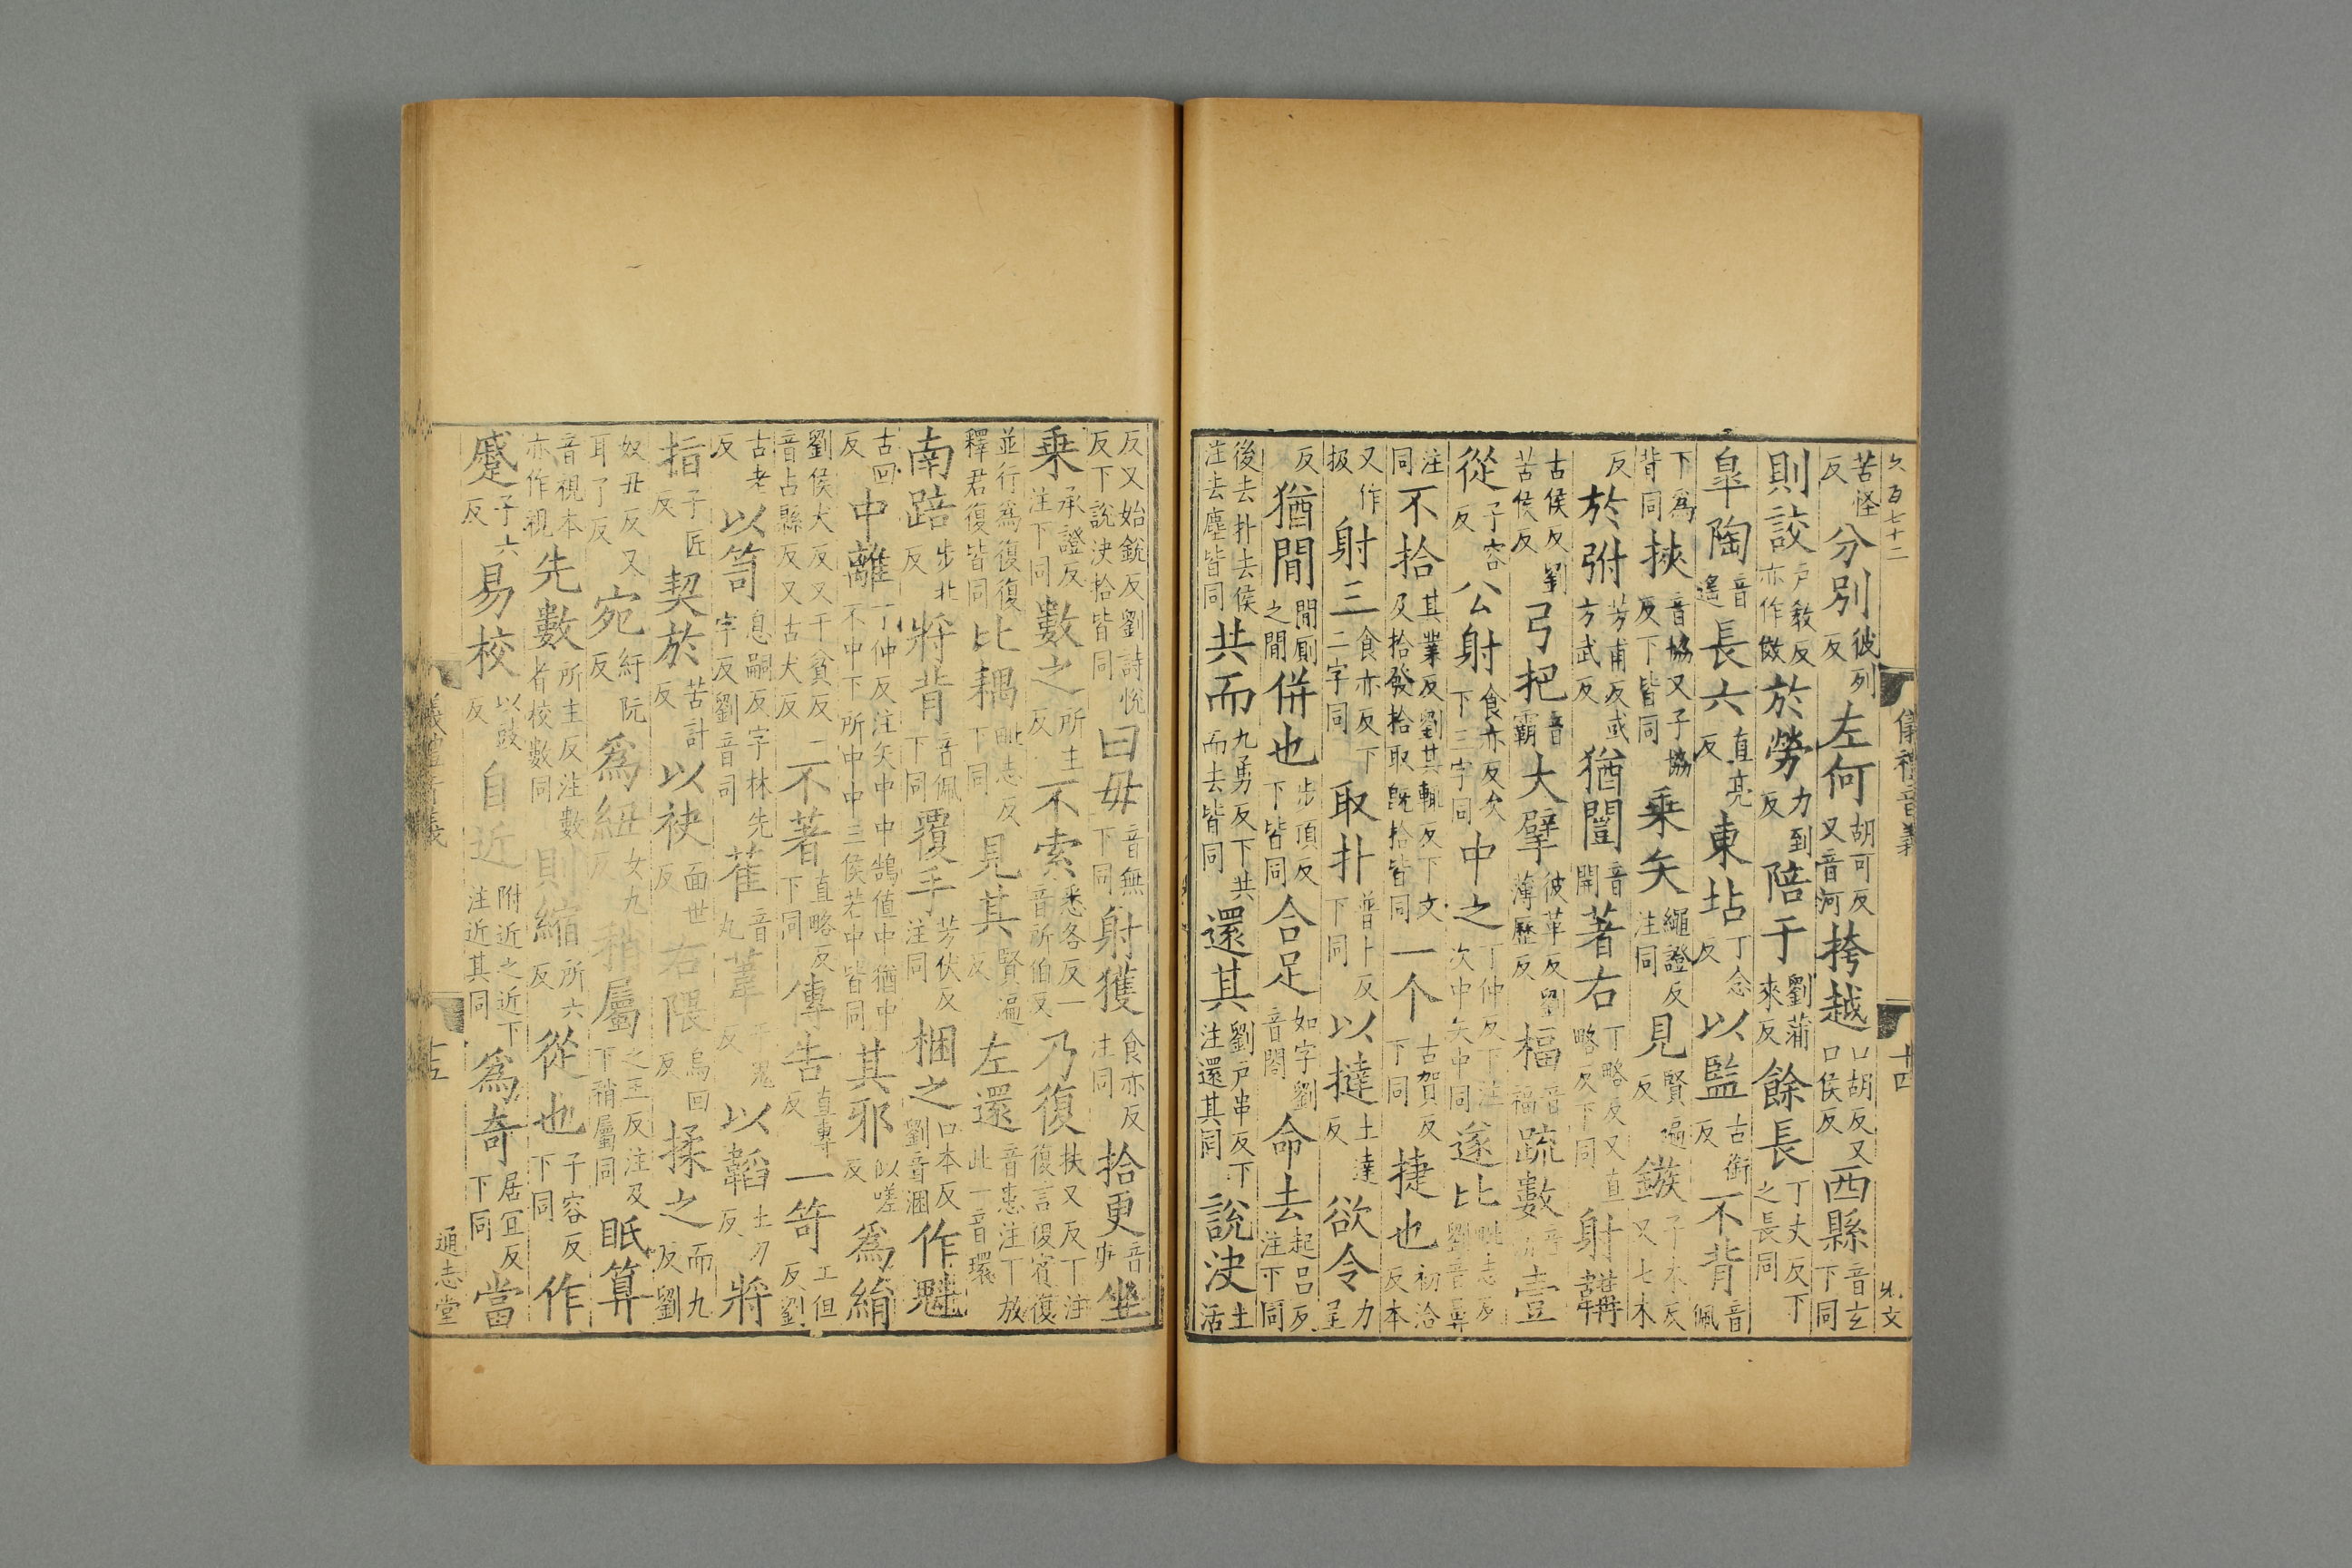 久百七十二 儀禮音義 十四 朱文
苦怪反分別彼列反左何胡可反又音河挎越口胡反又口侯反西縣音玄下同
則詨戶教反亦作傚於勞力到反陪于劉蒲來反餘長丁丈反下之長同
臯陶音遙長六直亮反東坫丁念反以監古銜反不背音佩
下爲皆同挾音協又子協反下皆同乗矢繩證反注同見賢遍反鏃子木反又七木
反於弣芳甫反或方武反猶闓音開著右丁略反又直略反下同射韝
古侯反劉苦侯反弓把音霸大擘彼革反劉薄歷反楅音福疏數音朔壹
從子容反公射食亦反次下三字同中之丁仲反下注次中矢中同遂比毗志反劉音
注同不拾其業反劉其輒反下文及拾發拾取旣拾皆同一个古賀反下同捷也初洽反本
又作扱射三食亦反下二字同取扑普卜反下同以撻土達反欲令力呈
反猶閒閒厠之閒併也步頂反下皆同合足如字劉音閤命去起呂反注下同
後去扑去侯注去塵皆同共而九勇反下共而去皆同還其劉戶串反下注還其同說決土活
反又始銳反劉詩悅反下說決拾皆同曰毋音無下同射獲食亦反注同拾更音庚坐
乗承證反注下同數之所主反不索悉各反一音所伯反乃復扶又反丁注復言復賓復
並行爲復復釋君復皆同比耦毗志反下同見其賢遍反左還音患注丁放此一音環
南踣步北反將背音佩下同覆手芳伏反注同梱之口本反劉音溷作魁
古回反中離丁仲反注矢中中鵠值中猶中不中下所中中三侯若中皆同其邪似嗟反爲絹
劉侯犬反又于貧反一音占縣反又古犬反不著直略反下同傳告直專反一笴工但反劉
古老反以笥息嗣反字林先字反劉音司萑音丸葦于鬼反以韜土刀反將
指子匠反契於苦計反以袂面世反右隈烏回反揉之而九反劉
奴丑反又耳了反宛紆阮反爲紐女九反稍屬之玉反注及下稍屬同眂算
音視本亦作視先數所主反注數者校數同則縮所六反從也子容反下同作
蹙子六反易校以豉反自近附近之近下注近其同爲奇居宜反下同當
通志堂